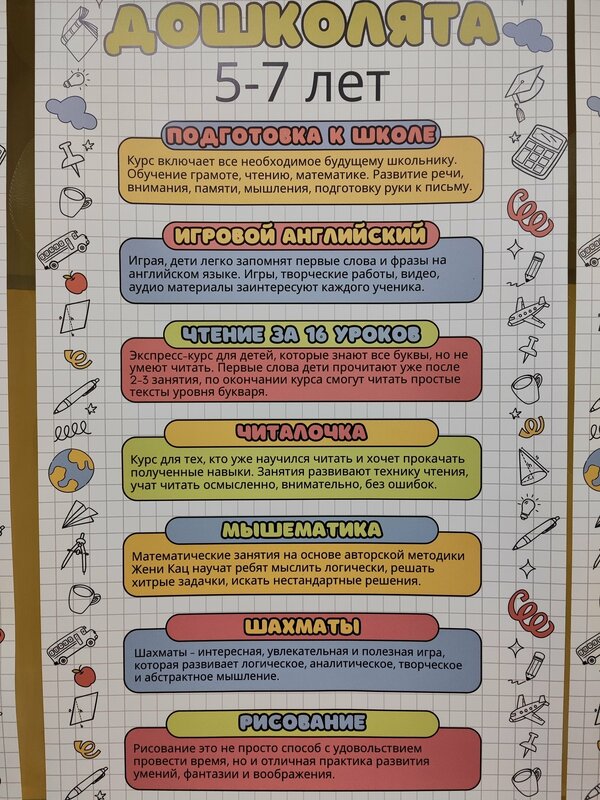 ДОШКОЛЯТА
5-7 лет
ПОДГОТОВКА К ШКОЛЕ
Курс включает все необходимое будущему школьнику.
Обучение грамоте, чтению, математике. Развитие речи,
внимания, памяти, мышления, подготовку руки к письму.
ИГРОВОЙ АНГЛИЙСКИЙ
Играя, дети легко запомнят первые слова и фразы на
английском языке. Игры, творческие работы, видео,
аудио материалы заинтересуют каждого ученика.
ЧТЕНИЕ ЗА 16 УРОКОВ
Экспресс-курс для детей, которые знают все буквы, но не
умеют читать. Первые слова дети прочитают уже после
2-3 занятия, по окончании курса смогут читать простые
тексты уровня букваря.
ЧИТАЛОЧКА
Курс для тех, кто уже научился читать и хочет прокачать
полученные навыки. Занятия развивают технику чтения,
учат читать осмысленно, внимательно, без ошибок.
МЫШЕМАТИКА
Математические занятия на основе авторской методики
Жени Кац научат ребят мыслить логически, решать
хитрые задачки, искать нестандартные решения.
ШАХМАТЫ
Шахматы - интересная, увлекательная и полезная игра,
которая развивает логическое, аналитическое, творческое
и абстрактное мышление.
РИСОВАНИЕ
Рисование это не просто способ с удовольствием
провести время, но и отличная практика развития
умений, фантазии и воображения.